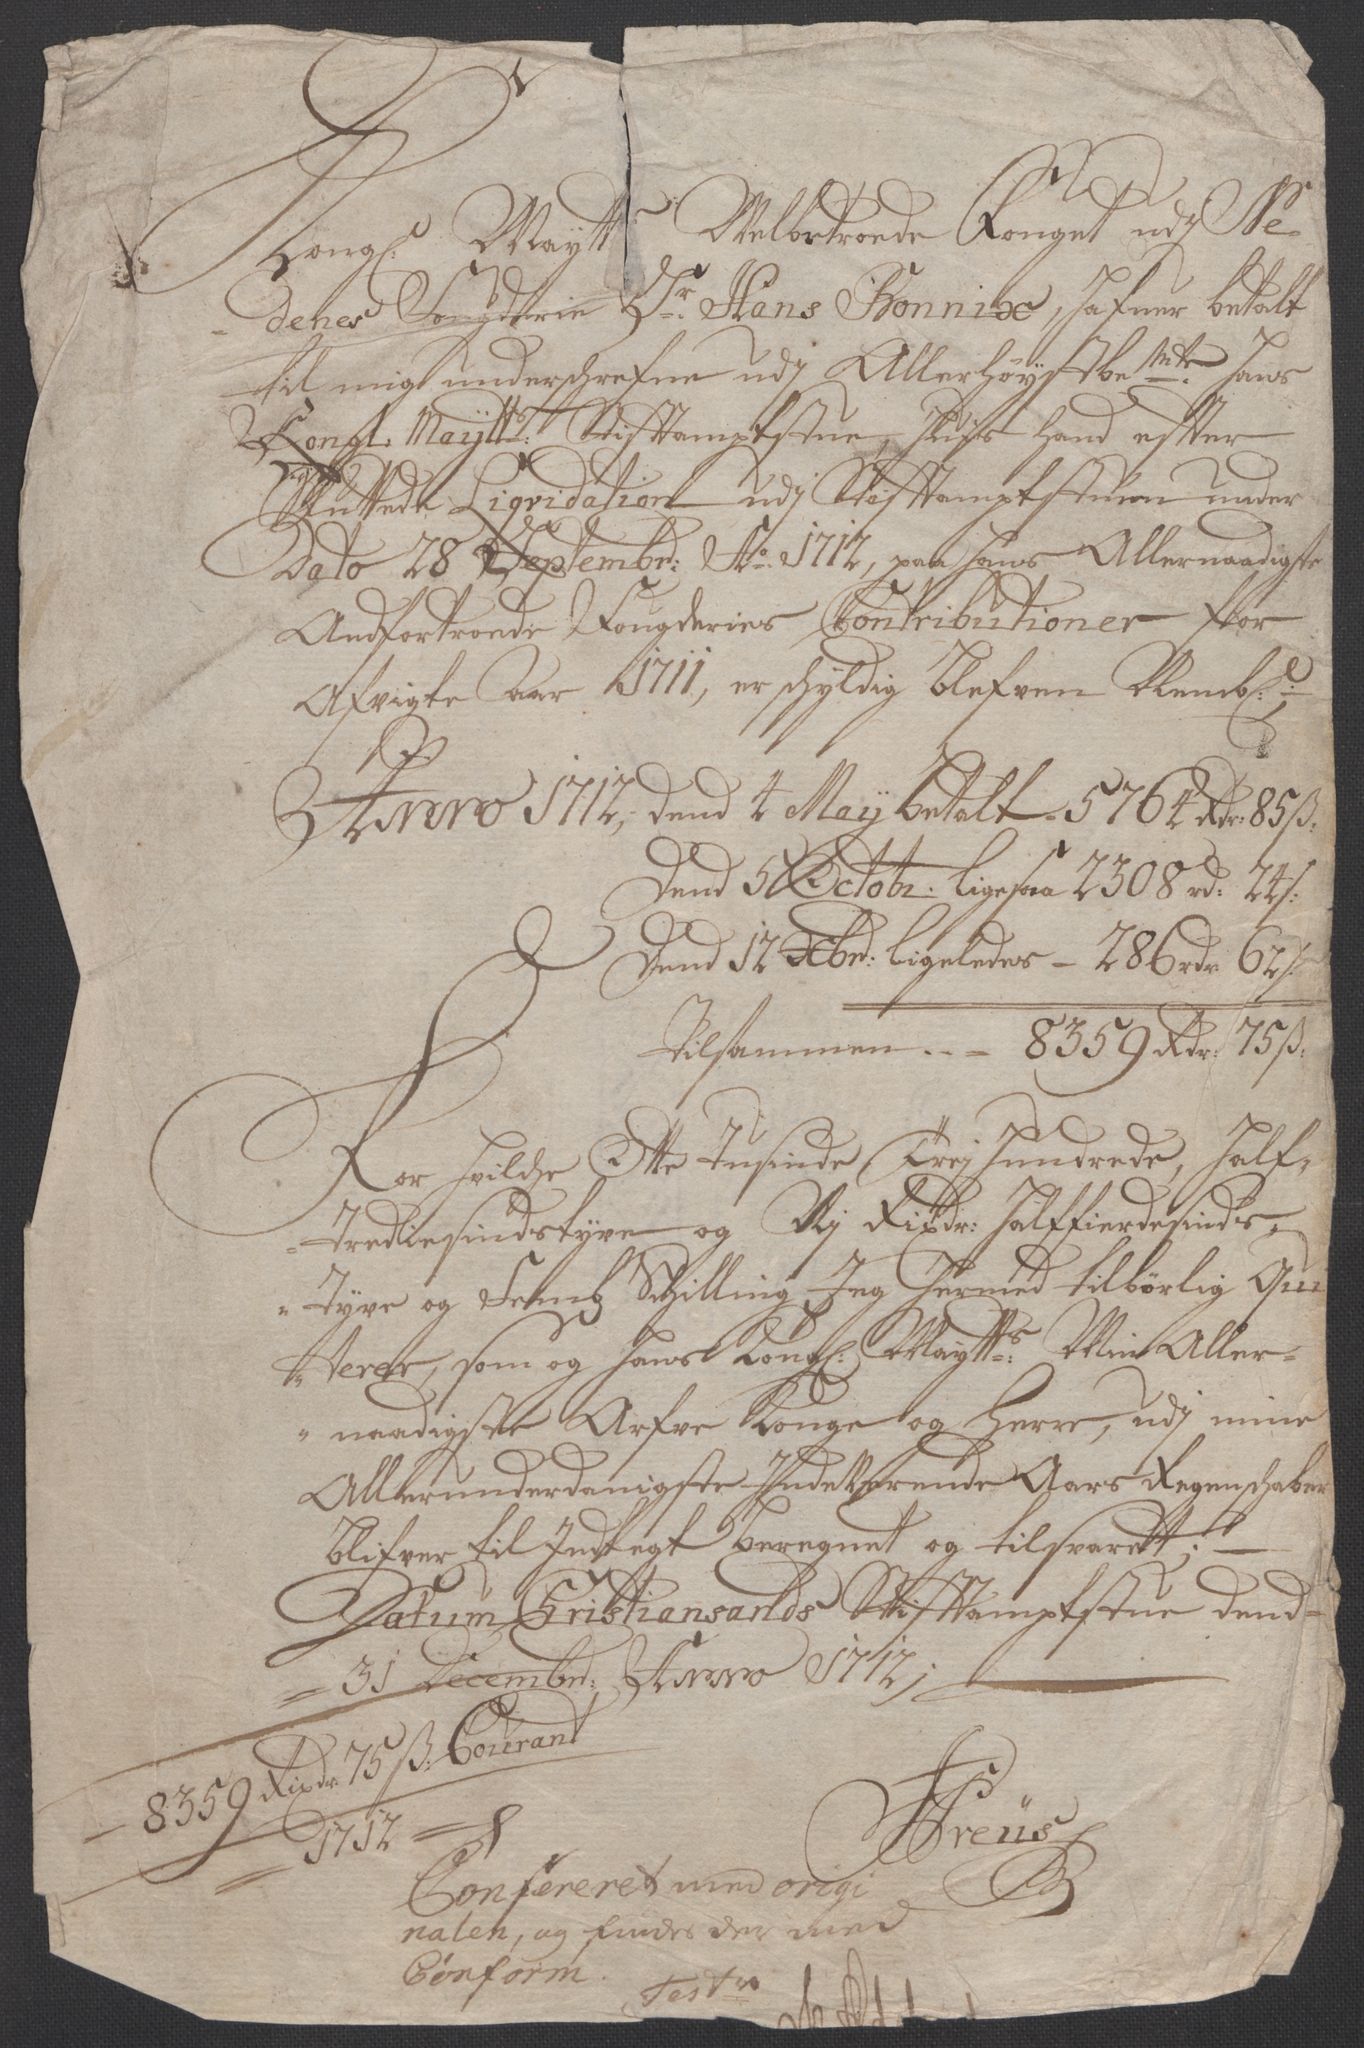 Kongl: Maytts Velbetroede Fouget udj Ne-
denes Fougderie Sr: Hans Bonnix, hafuer betalt
til mig underschrefne udj Allerhöÿstbemte: Hans
Kongl: Maÿtts: Stifttamptstue, huis hand efter
sluttede Liqvidation udj Stifttamptstuen under
Dato 28 Septembr: Ao: 1712, paa hans Allernaadigste
Andfortroede Fougderies Contributioner for
Afvigte aar 1711, er schyldig blefven Nembl:
Anno 1712, dend 4 Maÿ betalt - 5764 Rdr: 85 ß:
Dend 5 Octobr: ligesaa 2308 rd: 24 s:
Dend 12 Xbr: ligeledes - 286 rdr 62 s:
Tilsammen .. - 8359 Rdr: 75 ß:
For hvilche Otte Tusinde Trej Hundrede, Half-
tredie sindstyve og Nj Rixdr: halffierdesinds-
Tyve og Femb Schilling Jeg hermed tilbörlig Qui
terer, som og hans Kongl: Maytts: Min Aller-
naadigste Arfve Konge og Herre, udj mine
Allerunderdanigste Indeverende Aars Regenschaber
blifver til Indtegt beregnet og tilsvarett;
Datum Cristiansands Stifttamptstue dend
31 Decembr: Anno 1712;
8359 Rixdr: 75 ß: Courant
1712
Treüs
Confereret med origi
nalen, og findes der med
Conform.
Test: